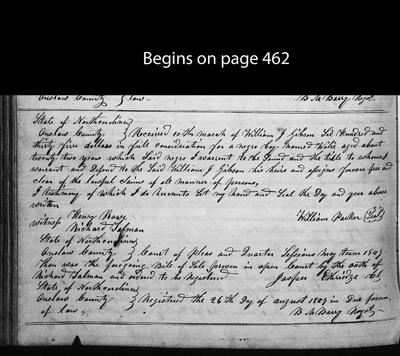 Begins on page 462
Onslow County } law
B McBarry Regr
State of Northcarolina
Onslow County } Received 10th march of William J Gibson Six Hundred and
thirty five dollars in full consideration for a negro boy named Wills aged about
twenty two years which Said negro I warrent to the Sound and the title to whom I
warant and Defend to the Said William J Gibson his heirs and assigns forever free and
clear of the lawful claims of all manner of persons,
I testimony of which I do hereunto Set my hand and Seal the Day and year above
written
William Parker Seal
witness Henry Rowe
Richard Salman
State of Northcarolina
Onslow County } Court of Pleas and Quarter Sessions may term
then was the foregoing Bill of Sale proven in open Court by the oath of
Richard Salman and ordered to be Registered
Jasper Etheridge
State of Northcarolina
Onslow County } Registered the 26th Day of august in Due form
of law,
B McBarry Regr